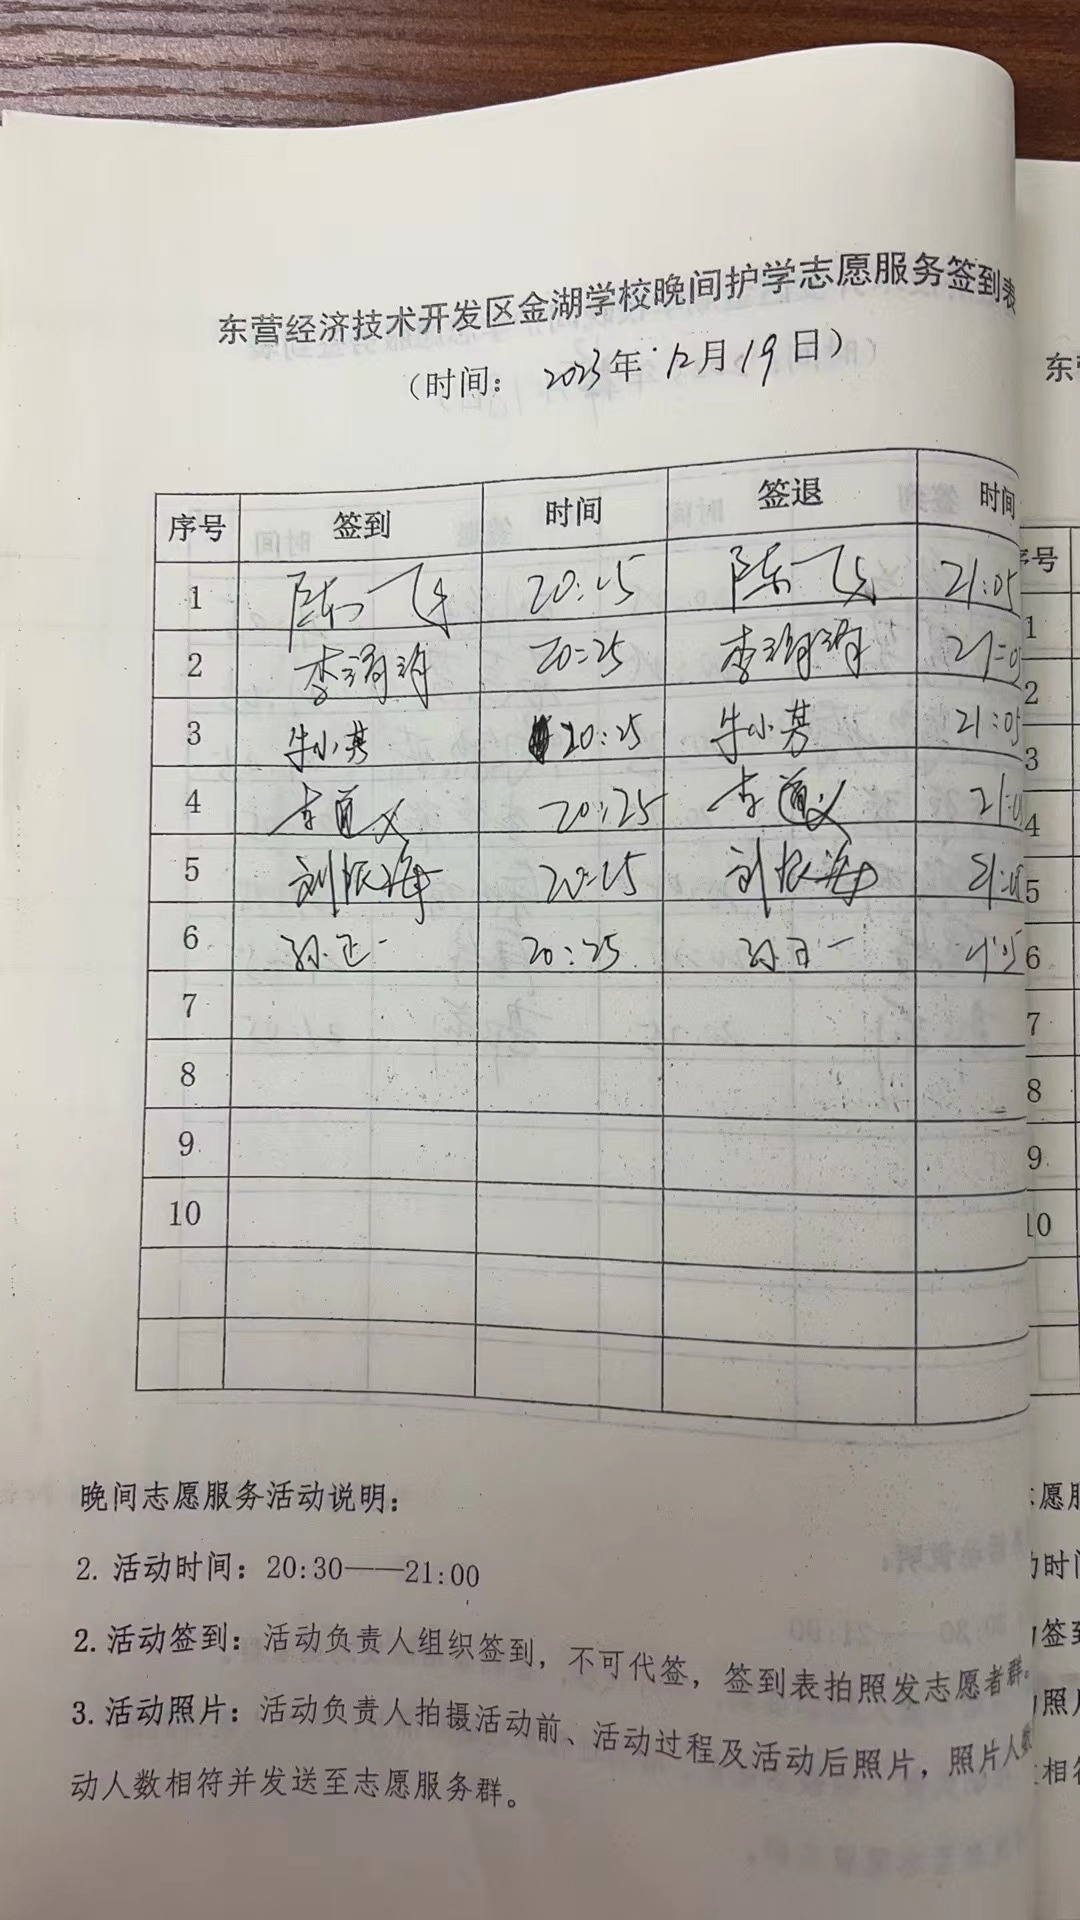 东营经济技术开发区金湖学校晚间护学志愿服务签到表
（时间： 2023年 12月19日）
序号 签到 时间 签退 时间
1 陈飞 20:25 陈飞 21:05
2 李 20:25 李 21:0
3 牛小芳 20:25 牛小芳 21:05
4 李道义 20:25 李道义 21:0
5 刘振海 20:25 刘振海 21:05
6 孙正一 20:25 孙正一
7
8
9
10
晚间志愿服务活动说明：
2. 活动时间：20:30——21:00
2. 活动签到：活动负责人组织签到，不可代签，签到表拍照发志愿者群。
3. 活动照片：活动负责人拍摄活动前、活动过程及活动后照片，照片人数
动人数相符并发送至志愿服务群。
东营
序号
1
2
3
4
5
6
7
8
9
10
愿服
时间
签到
照片
相符